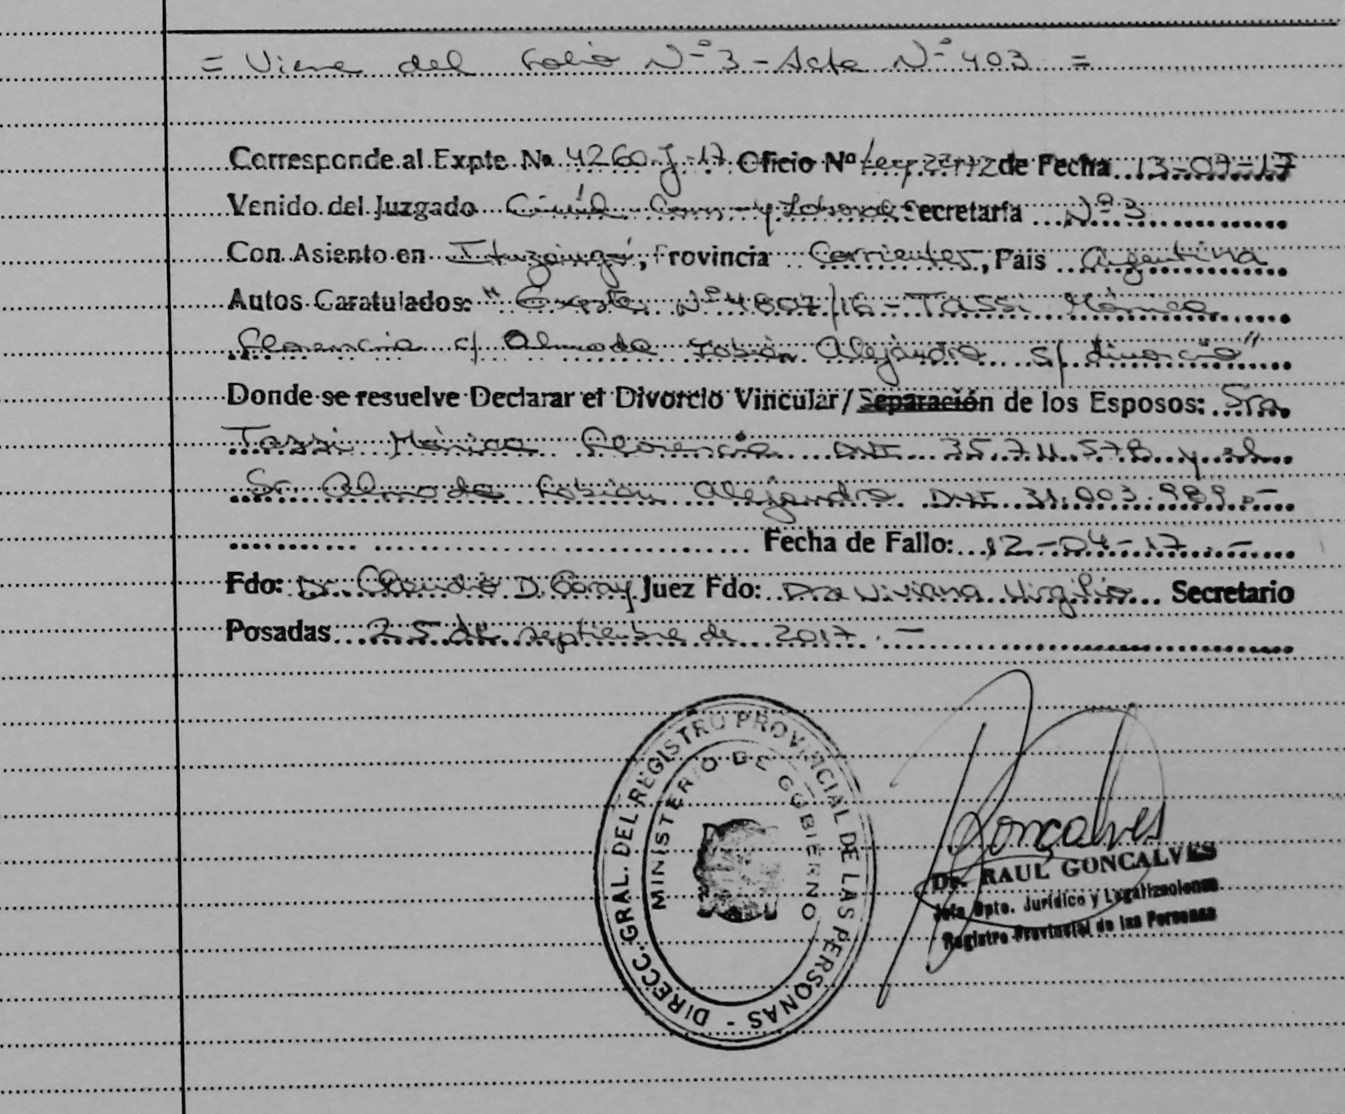 = Viene del Folio Nº 3 - Acta Nº 403 =
Corresponde al Expte. Nº 4260-J-17 Oficio Nº Ley 22172 de Fecha 13-09-17
Venido del Juzgado Civil, Com. y Laboral Secretaría Nº 3
Con Asiento en Ituzaingó, Provincia Corrientes, País Argentina
Autos Caratulados: "Expte. Nº 4807/16 - Tassi Mónica
Florencia c/ Almada Fabián Alejandro s/ divorcio"
Donde se resuelve Declarar el Divorcio Vincular/Separación de los Esposos: Sra.
Tassi Mónica Florencia DNI 35.711.578 y el
Sr. Almada Fabián Alejandro DNI 31.003.989.-
Fecha de Fallo: 12-04-17.-
Fdo: Dr. Claudio D. Juez Fdo: Dra Viviana Virgilio Secretario
Posadas 25 de septiembre de 2017.-
DIRECC. GRAL. DEL REGISTRO PROVINCIAL DE LAS PERSONAS -
MINISTERIO DE GOBIERNO
Gonçalves
Dr. RAUL GONCALVES
Jefe Dpto. Jurídico y Legalizaciones
Registro Provincial de las Personas